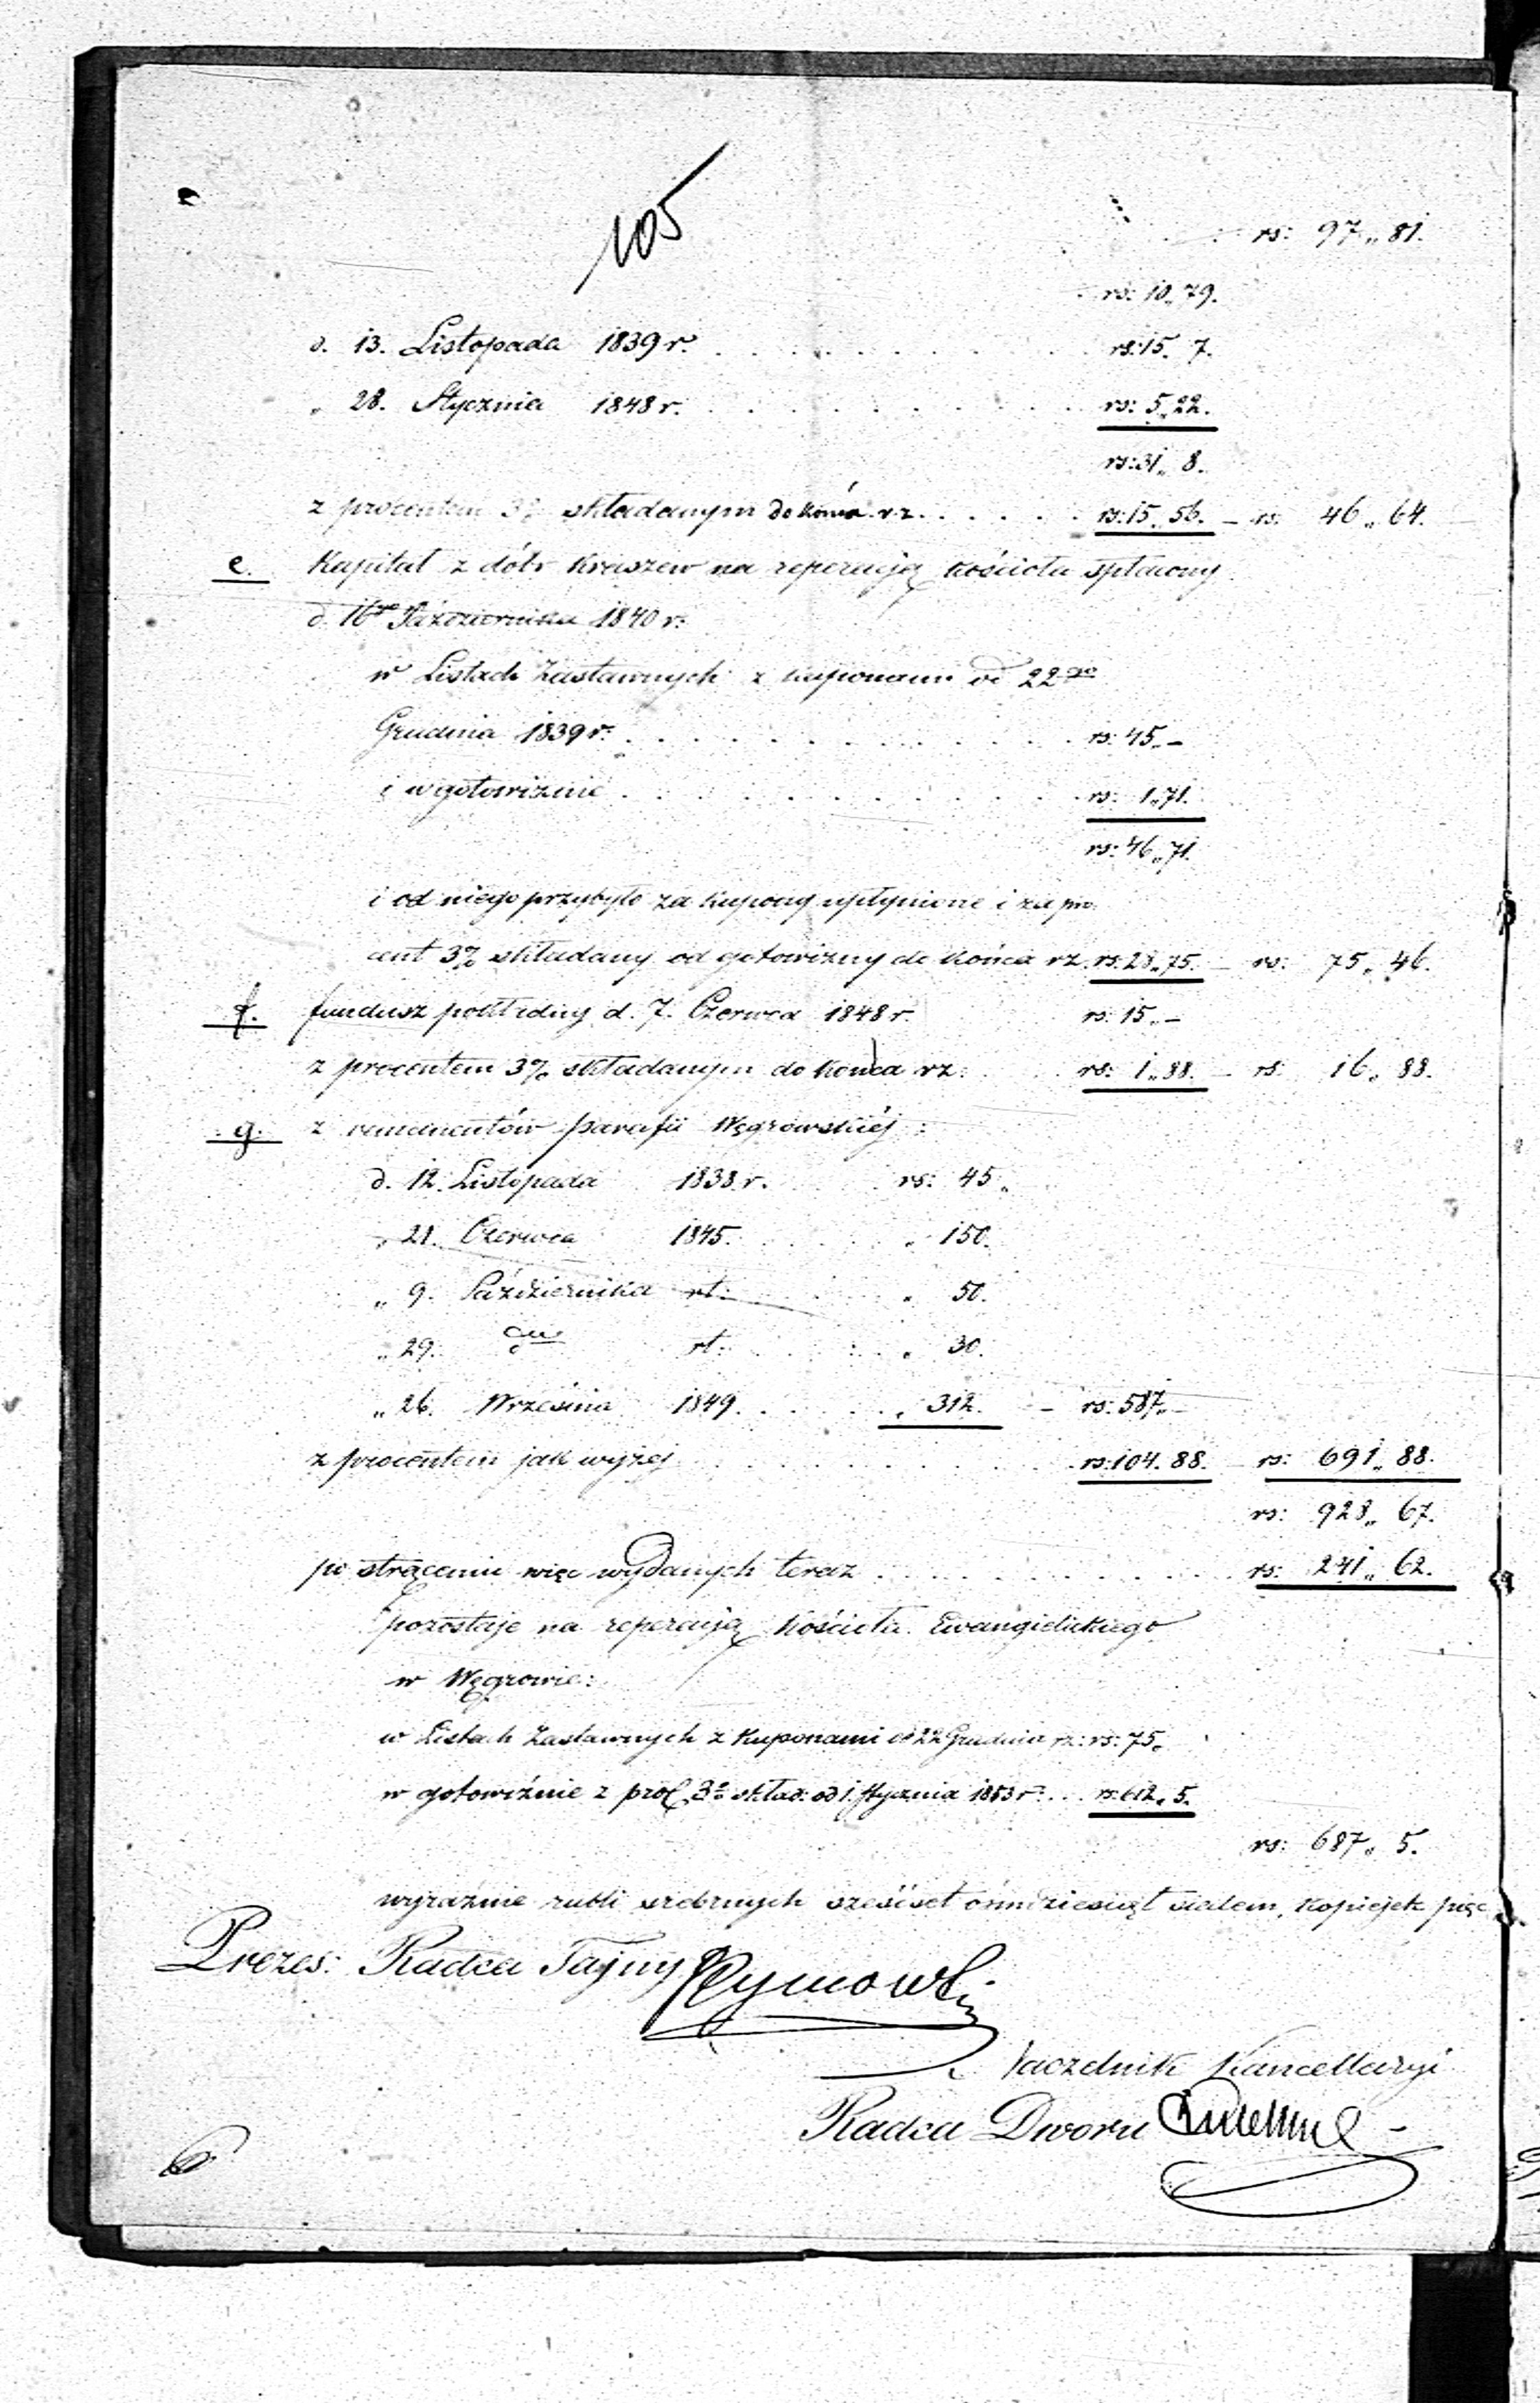 105
rs: 97„ 81.
rs: 10„ 79.
d. 13. Listopada 1839 r. . . . . rs: 15. 7.
„ 28. Stycznia 1848 r. . . . . rs: 5„ 22.
rs: 31„ 8.
z procentem 3% składanym do końca r. z. . . . . rs: 15„ 56. — rs: 46„ 64.
e. Kapitał z dóbr Kraszew na reperacją kościoła spłacony
d. 16go Października 1840 r:
w Listach Zastawnych z kuponami od 22go
Grudnia 1839 r: . . . . rs: 45„ —
i w gotowiznie . . . . rs: 1„ 71.
rs: 46„ 71.
i od niego przybyło za kupony upłynione i za pro-
cent 3% składany od gotowizny do końca rz. rs: 28„ 75. — rs: 75„ 46.
f. fundusz pokładny d. 7. Czerwca 1848 r. rs: 15„ —
z procentem 3% składanym do końca rz: . . rs: 1„ 88. — rs: 16„ 88.
g. z remanentów parafii Węgrowskiéj:
d. 12. Listopada 1838 r. . . rs: 45„
„ 21. Czerwca 1845. . . „ 150.
„ 9. Października rt: . . „ 50.
„ 29. rt: . . „ 30.
„ 26. Września 1849. . . „ 312. — rs: 587„ —
z procentem jak wyżej . . . . rs: 104. 88. rs: 691„ 88.
rs: 928„ 67.
po strąceniu więc wydanych teraz . . . . rs: 241„ 62.
pozostaje na reperacją Kościoła Ewangielickiego
w Węgrowie:
w Listach Zastawnych z kuponami od 22 Grudnia rz: rs: 75„
w gotowiźnie z proc. 3% skład: od 1. Stycznia 1853 r: . . rs: 612„ 5.
rs: 687„ 5.
wyraźnie rubli srebrnych sześćset ośmdziesiąt siedem, kopiejek pięć.
Prezes: Radca Tajny
Naczelnik Kancellaryi
Radca Dworu